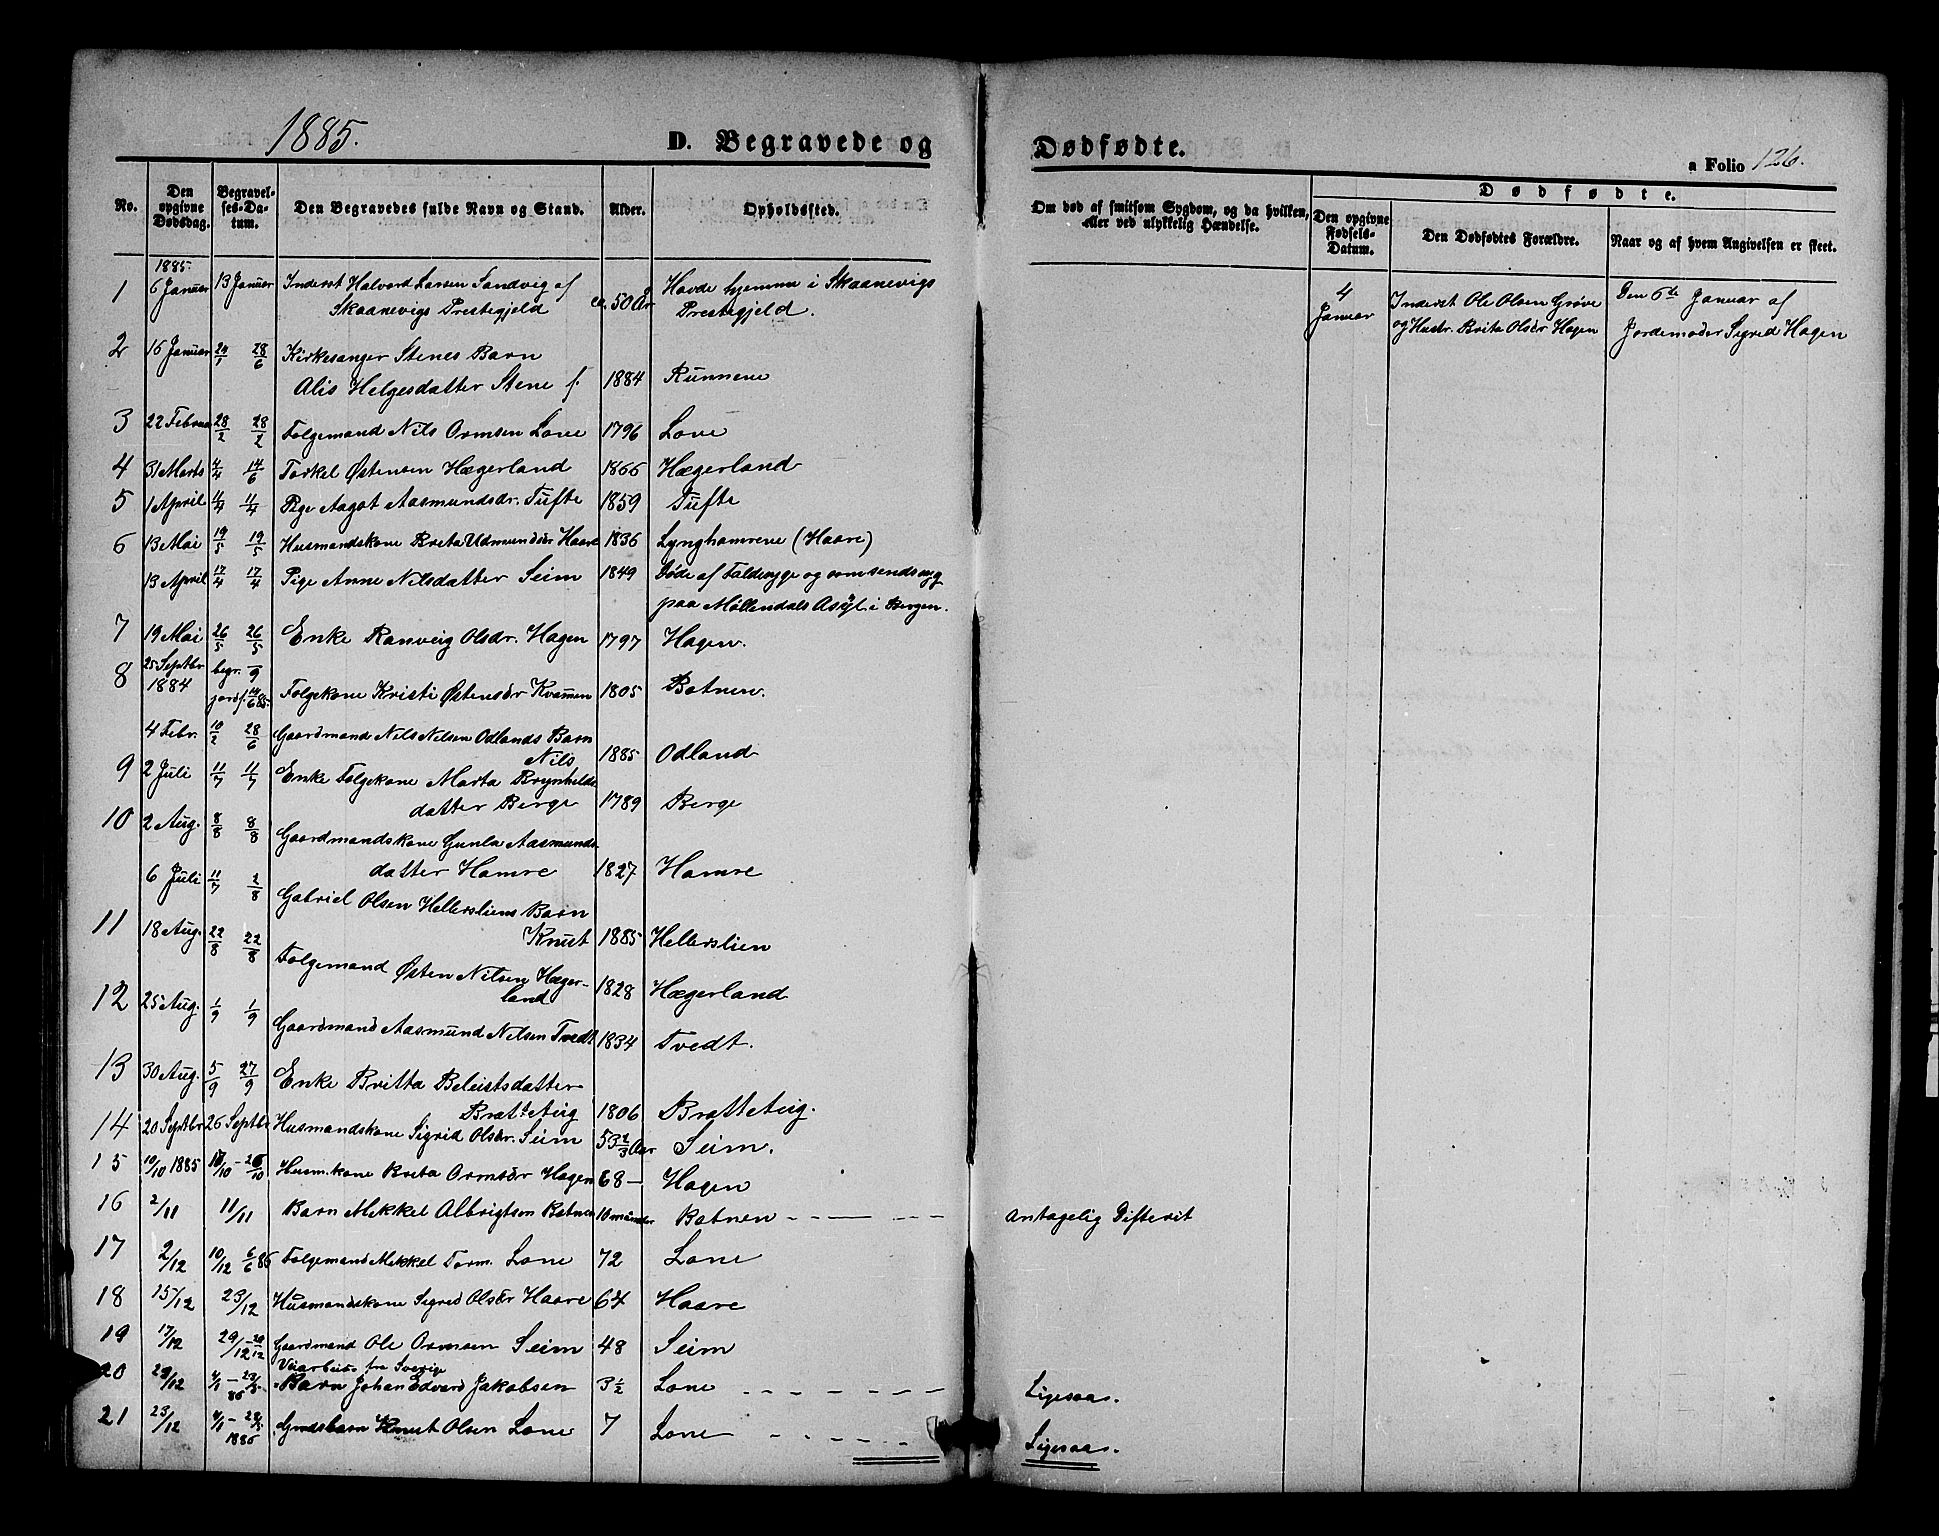 1885.
D. Begravede og
Dødfødte.
a Folio 126.
No.
Den opgivne Dødsdag.
Begravelses-Datum.
Den Begravedes fulde Navn og Stand.
Alder.
Opholdssted.
Om død af smitsom Sygdom, og da hvilken, eller ved ulykkelig Hændelse.
Dødfødte.
Den opgivne Fødsels-Datum.
Den Dødfødtes Forældre.
Naar og af hvem Angivelsen er skeet.
1885.
1 6 Januar 13 Januar Inderst Halvord Larsen Sandvig af ca. 50 Aar Havde hjemme i Skaanevigs
Skaanevigs Prestegjeld Prestegjeld.
4 Januar Inderst Ole Olsen Grove Den 6te Januar af
og Hustr. Brita Olsdr Hagen Jordemoder Sigrid Hagen
2 16 Januar 24/1 28/6 Kirkesanger Stenes Barn
Alis Helgesdatter Stene f. 1884 Runnene
3 22 Februar 28/2 28/2 Folgemand Nils Ormsen Lone 1796 Lone
4 31 Marts 4/4 14/6 Torkel Østensen Hægerland 1866 Hægerland
5 1 April 11/4 11/4 Pige Aagot Aasmundsdr. Tufte 1859 Tufte
6 13 Mai 19/5 19/5 Husmandskone Brita Udmundsdr Haare 1836 Lynghamrene (Haare)
13 April 17/4 17/4 Pige Anne Nilsdatter Seim 1849 Døde af Faldesyge og som sendssyg
paa Møllendals Asyl i Bergen.
7 19 Mai 26/5 26/5 Enke Ranveig Olsdr. Hagen 1797 Hagen.
8 25 Septbr 1884 begr. 9 jordf. 14/6 85. Folgekone Kristi Østensdr Kvammen 1805 Botnen.
4 Febr. 10/2 28/6 Gaardmand Nils Nilsen Odlands Barn
Nils 1885 Odland
9 2 Juli 11/7 11/7 Enke Folgekone Marta Brynhilds
datter Berge 1789 Berge
10 2 Aug. 8/8 8/8 Gaardmandskone Gunla Aasmunds
datter Hamre 1827 Hamre
6 Juli 11/7 2/8 Gabriel Olsen Hellersliens Barn
Knut 1885 Hellerslien
11 18 Aug. 22/8 22/8 Folgemand Østen Nilsen Hæger-
land 1828 Hægerland
12 25 Aug. 1/9 1/9 Gaardmand Aasmund Nilsen Tvedt 1834 Tvedt.
13 30 Aug. 5/9 27/9 Enke Britta Beleistsdatter
BratteTeig 1806 BratteTeig.
14 20 Septbr 26 Septbr Husmandskone Sigrid Olsdr. Seim 53 2/3 Aar Seim.
15 10/10 1885 17/10 - 26/10 Husm.kone Brita Ormsdr Hagen 68 — Hagen
16 2/11 11/11 Barn Mikkel Albrigtsen Botnen 10 maander Botnen Antagelig Difterit
17 2/12 10/12 6/6 86 Folgemand Mikkel Torm. Lone 72 Lone
18 15/12 23/12 Husmandskone Sigrid Olsdr Haare 64 Haare
19 17/12 29/12 - 29/12 Gaardmand Ole Ormsen Seim 48 Seim
Veiarbeid. fra Sverige
20 29/12 4/1 86 Barn Johan Edvard Jakobsen 3 1/2 Lone Ligesaa.
21 23/12 4/1 1886 Gmdsbarn Knut Olsen Lone 7 Lone Ligesaa.